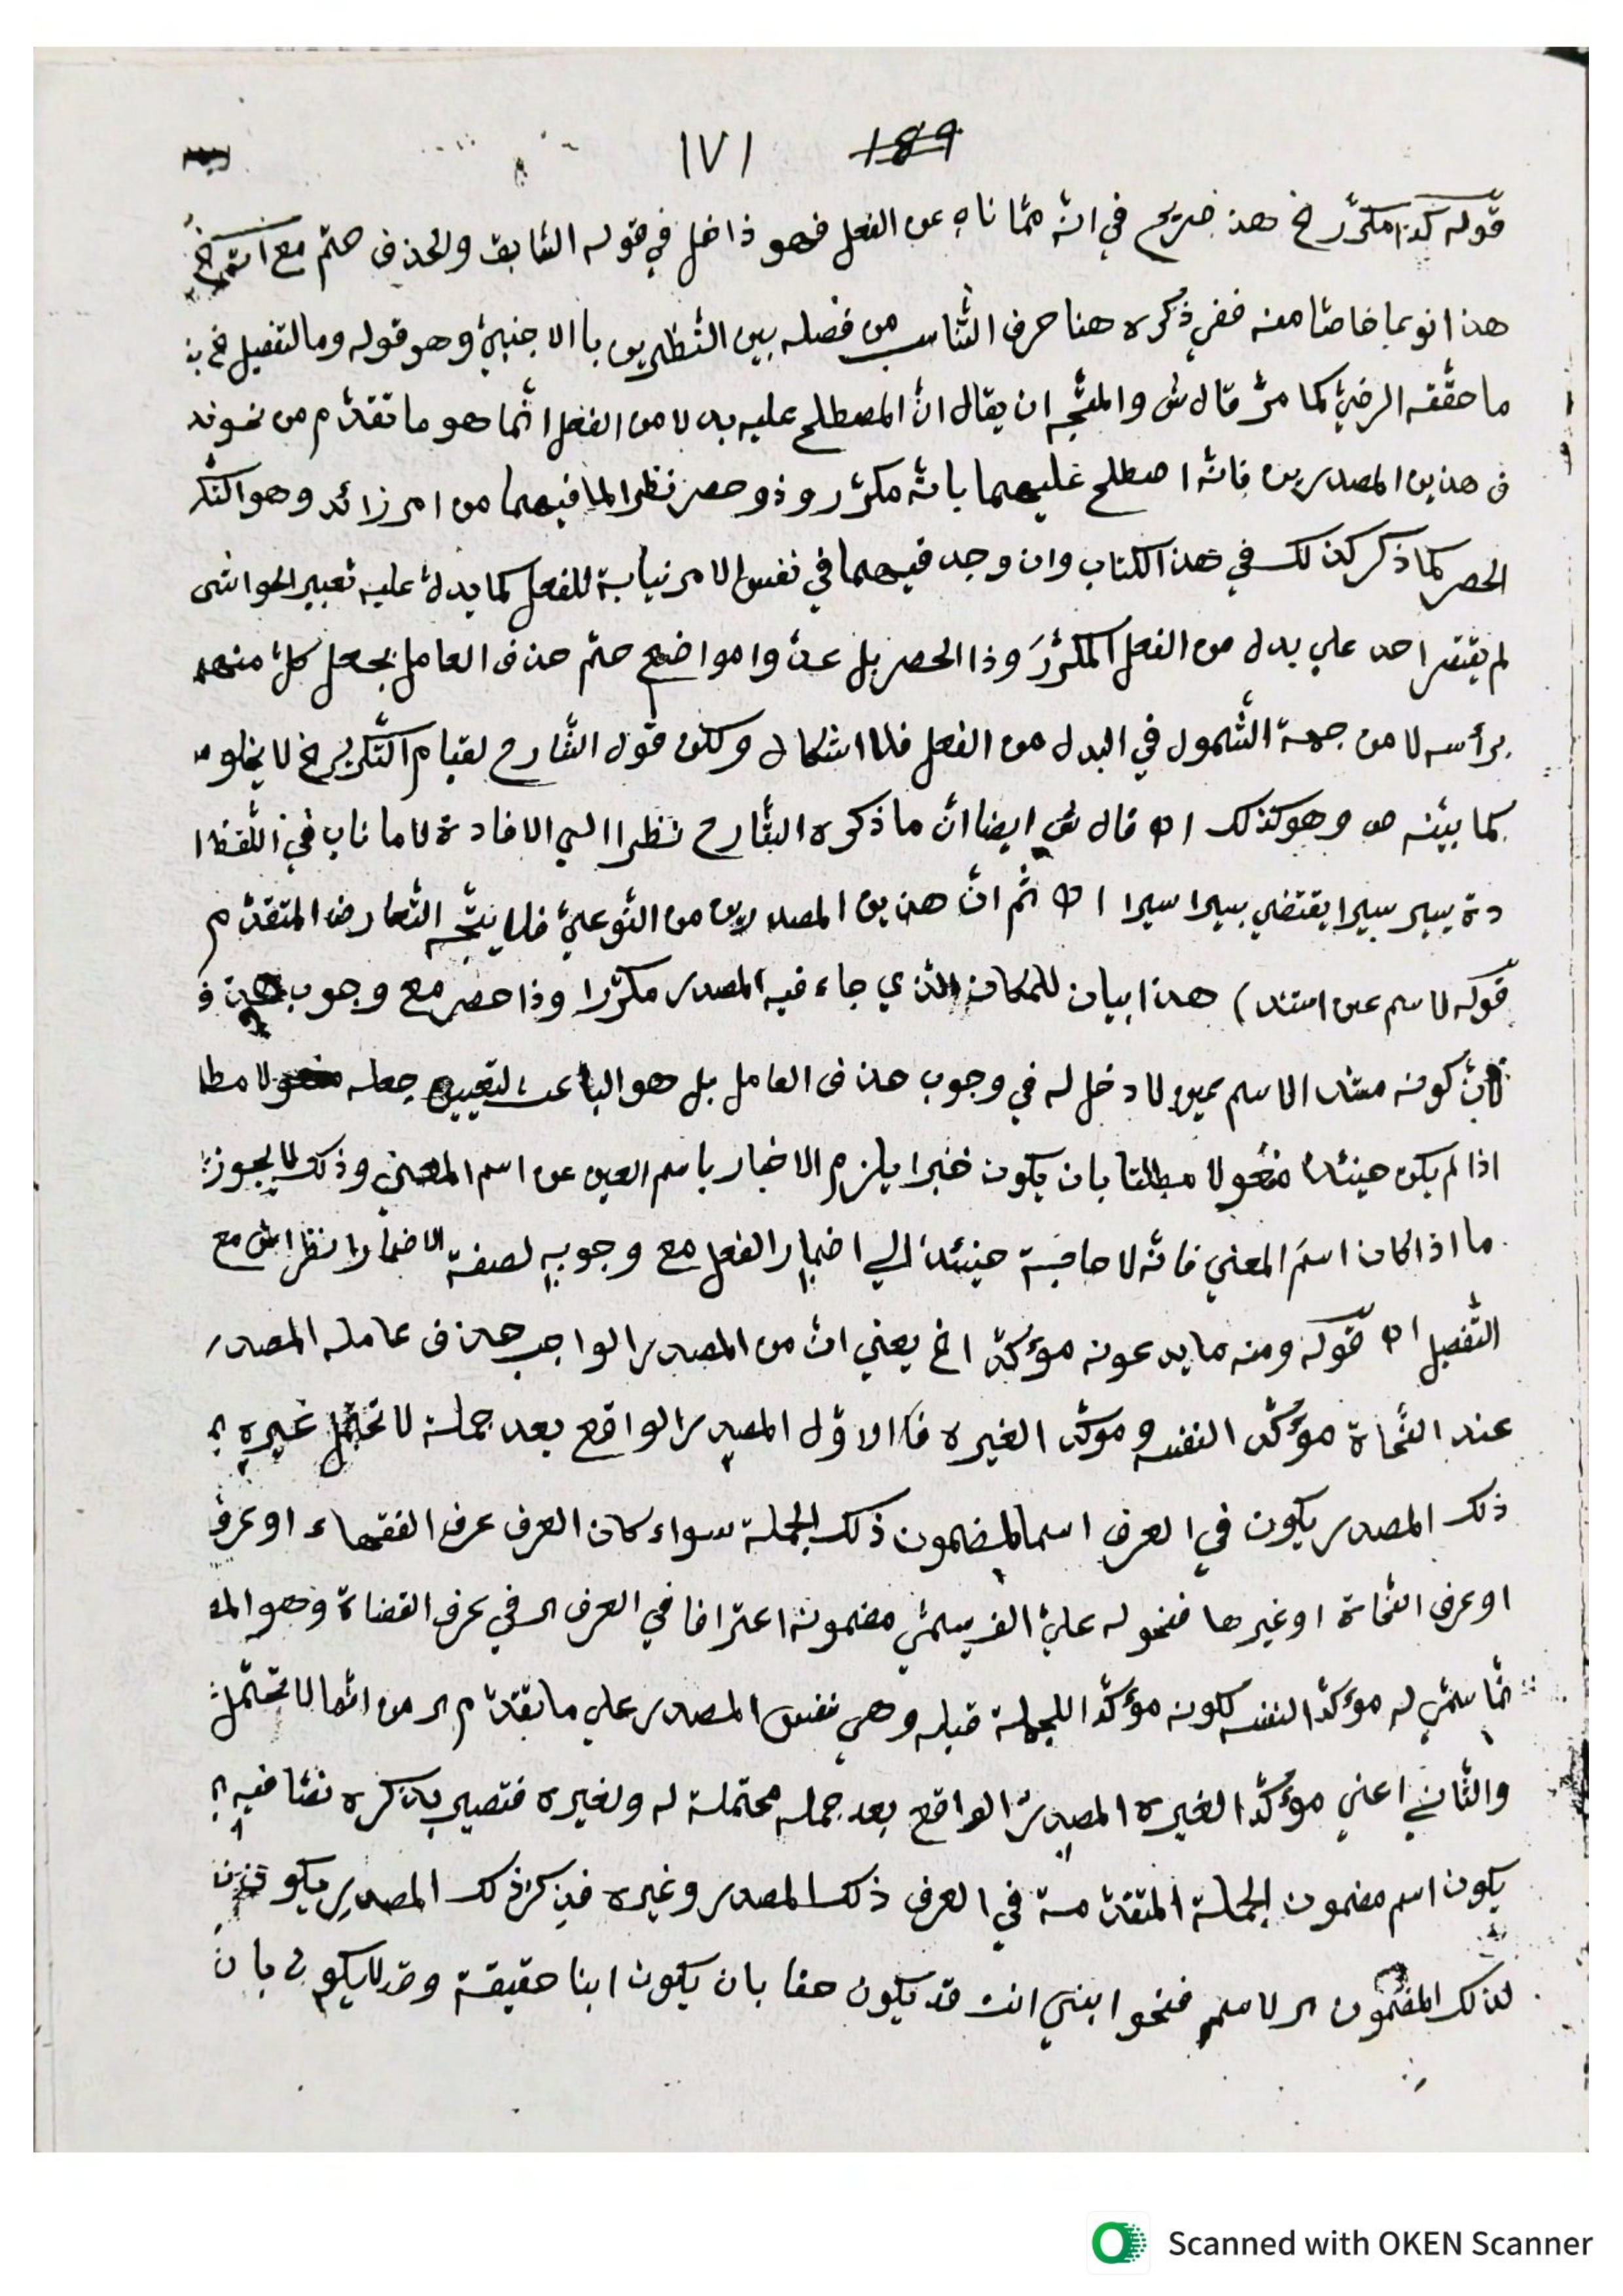 ١٧١ 189
قوله كذا مكرّر الخ هذا صريح في انّه ممّا ناب عن الفعل فهو داخل في قوله السّابق والحذف حتم مع آت
هذا نوعا خاصّا منه ففي ذكره هنا حرف التّناسب من فصله بين النّظيرين باالاجنبيّ وهو قوله وما لتفصيل الخ
ما حقّقه الرضيّ كما مرّ قال ش والمتّجه ان يقال انّ المصطلح عليه بدلا من الفعل انّما هو ما تقدّم من نحو ند
ف هذين المصدرين فانّه اصطلح عليهما بانّه مكرّر وذو حصر نظرا لما فيهما من امر زائد وهو التكر
الحصر كما ذكر كذلك في هذا الكتاب وان وجد فيهما في نفس الامر نيابة للفعل كما يدلّ عليه تعبير الحواشى
لم يقتصر احد علي بدل من الفعل المكرّرَ وذا الحصر بل عدّوا مواضع حتم حذف العامل بجعل كلّ منهم
برأسه لا من جهة الشّمول في البدل من الفعل فلا اشكال ولكن قول الشّارح لقيام التّكرير الخ لا يخلو
كما بيّنه ص وهو كذلك اه قال ش ايضا انّ ما ذكره الشّارح نظرا الي الافادة لا ما ناب في اللّفظ ا
دة يسير سيرا يقتضي سيرا سيرا اه ثم انّ هذين المصدرين من النّوعيّ فلا يتّجه التّعارض المتقدّم
قوله لاسم عين استند) هذا بيان للمكان الذي جاء فيه المصدر مكرّرا وذا حصر مع وجوب حذف
لانّ كونه مسند الاسم عين لا دخل له في وجوب حذف العامل بل هو الباعث لتعيين جعله مفعولا مطا
اذا لم يكن حينئذ مفعولا مطلقا بان يكون خبرا يلزم الاخبار باسم العين عن اسم المعني وذلك لا يجوز
ما اذا كان اسمَ المعني فانّه لا حاجة حينئذ الي اضمار الفعل مع وجوبه لصفة الاضمار انظر ش مع
التّفصيل اه قوله ومنه ما يدعونه مؤكدّا الخ يعني انّ من المصدر الواجب حذف عامله المصدر
عند النّحاة مؤكدّا لنفسه ومؤكدّا لغيره فاالاوّل المصدر الواقع بعد جملة لا تحتمل غيره
ذلك المصدر يكون في العرف اسما لمضمون ذلك الجملة سواء كان العرف عرف الفقهاء او عرف
او عرف النّحاة او غيرها فنحو له عليّ الف يسمّي مضمونه اعترافا في العرف اى في عرف القضاة وهو الم
نّما سمّي له مؤكدّا لنفسه لكونه مؤكدّا للجملة قبله وهي نفس المصدر علي ما تقدّم اى من انّها لا تحتمل
والثّاني اعني مؤكدّا لغيره المصدر الواقع بعد جمله محتملة له ولغيره فتصير بذكره نصّا فيه
يكون اسم مضمون الجملة المتقدّمة في العرف ذلك المصدر وغيره فبذكر ذلك المصدر يكون
لذلك المضمون اى لاسم فنحو ابني انت قد يكون حقا بان يكون ابنا حقيقة وقد لا يكون بان
Scanned with OKEN Scanner